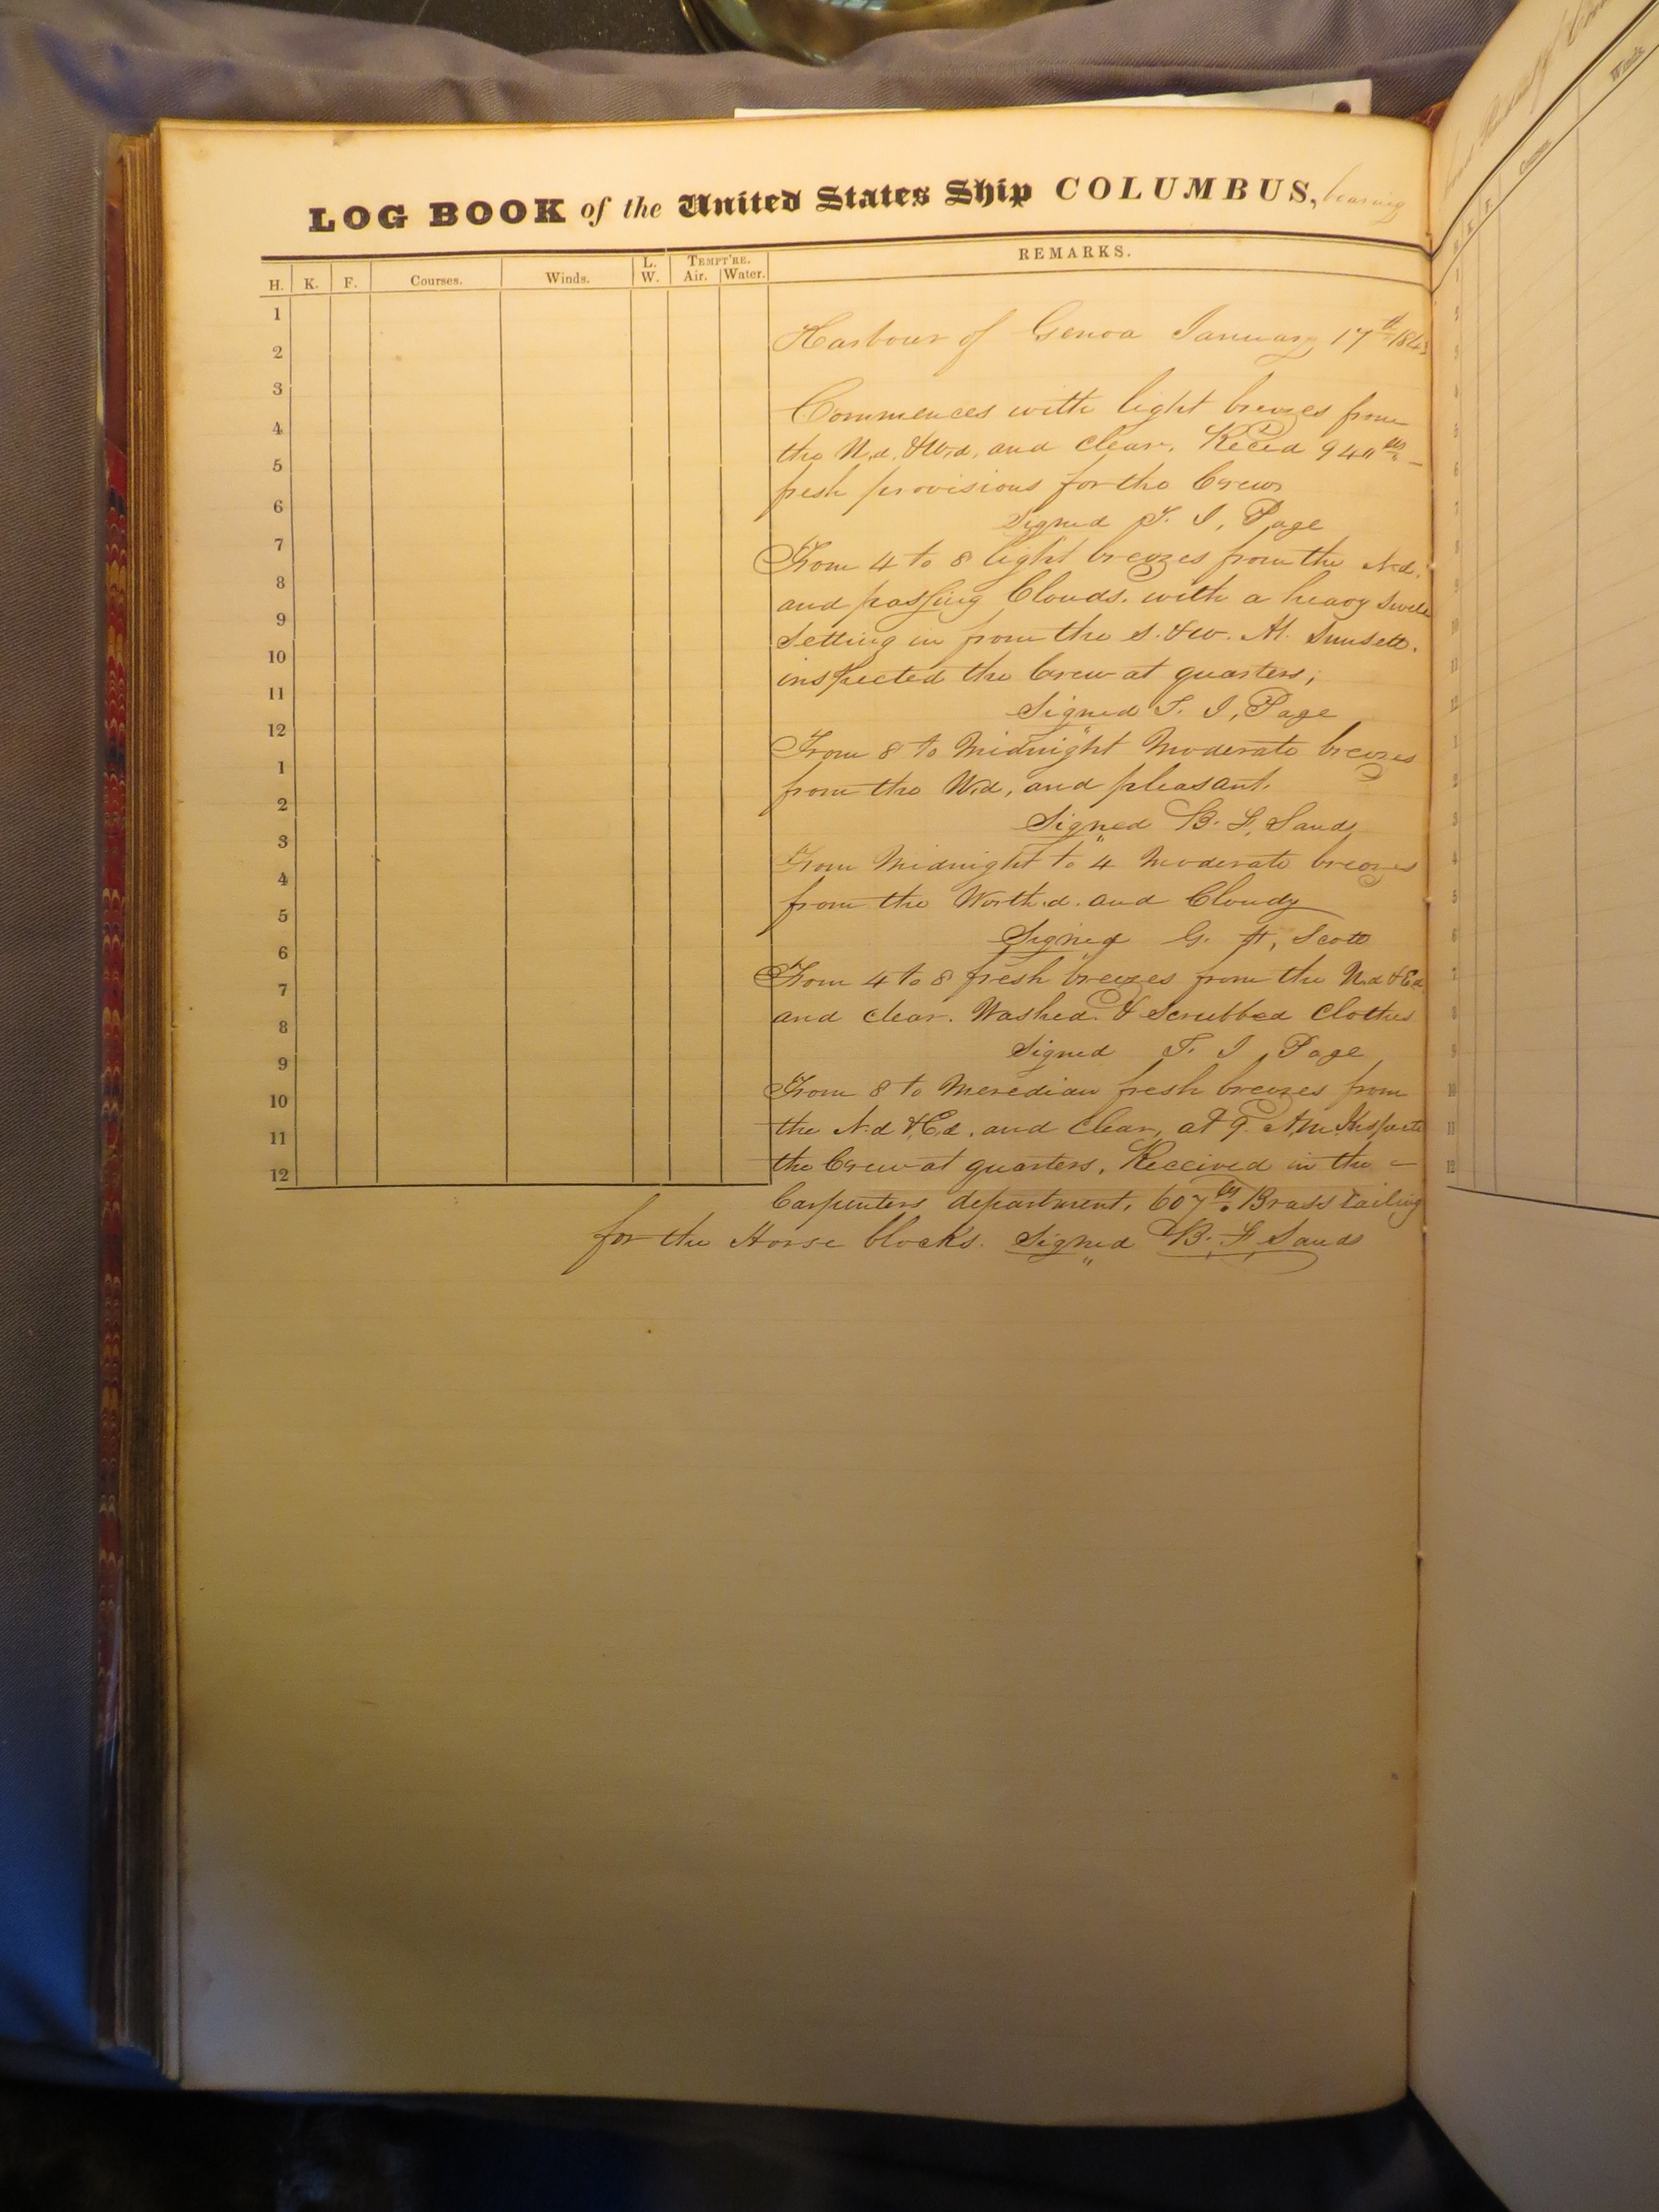 LOG BOOK of the United States Ship COLUMBUS, bearing
H. K. F. Courses. Winds. L. W. TEMPT'RE. Air. Water. REMARKS.
1
2
3
4
5
6
7
8
9
10
11
12
1
2
3
4
5
6
7
8
9
10
11
12
Harbour of Genoa January 17th 1843
Commences with light breezes from
the N.d. & W.d. and clear. Reced lbs
fresh provisions for the Crew
Signed T. J. Page
From 4 to 8 light breezes from the N.d.
and passing Clouds. with a heavy Swell
Setting in from the S. & W. At Sunsett.
inspected the Crew at quarters;
Signed T. J. Page
From 8 to Midnight Moderate breezes
from the W.d, and pleasant.
Signed B. F. Sands
From Midnight to 4 Moderate breezes
from the North.d. and Cloudy
Signed G. H. Scott
From 4 to 8 fresh breezes from the N.d & E.d
and clear. Washed & Scrubbed Clothes
Signed T. J. Page
From 8 to Meredian fresh breezes from
the N.d & E.d. and Clear, at 9 A.M. Inspected
the Crew at quarters. Received in the
Carpenters department, 607 lbs Brass railing
for the Horse blocks. Signed B. F Sands